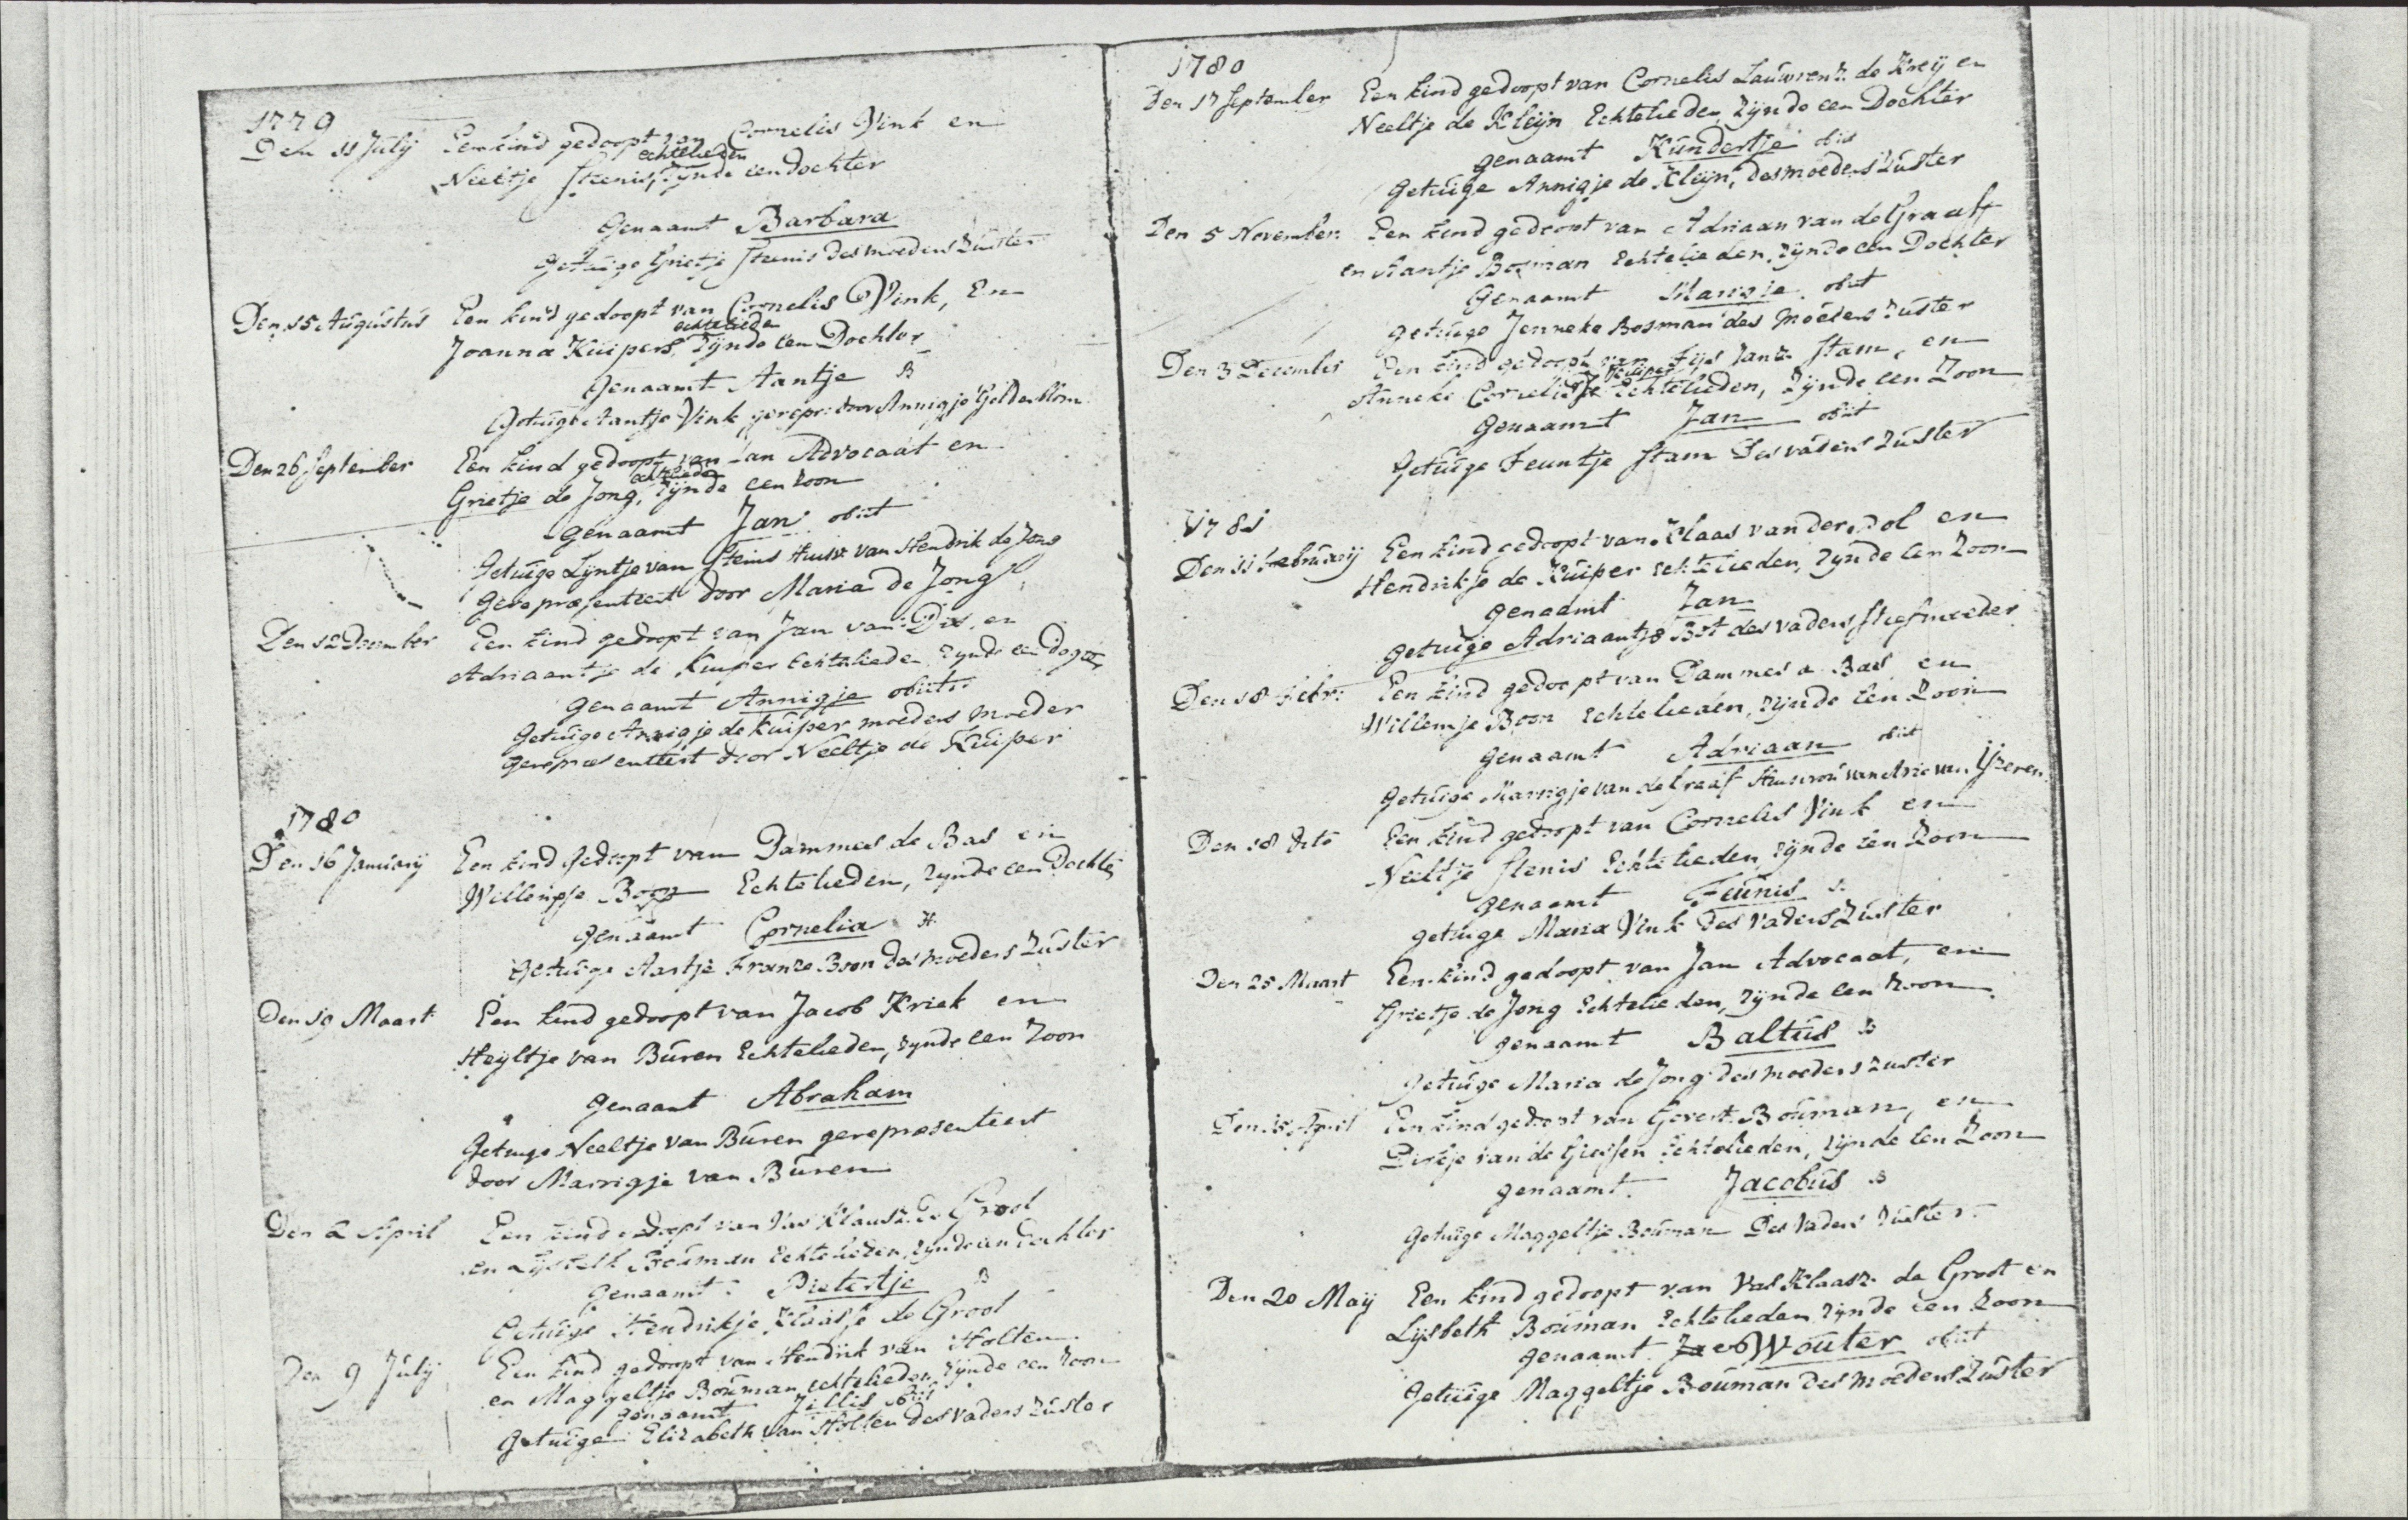 1779
Den 11 July Een kind gedoopt van Cornelis Vink en
echtelieden
Neeltje Stenis, zijnde een dochter
Genaamt Barbara
Getuige Grietje Stenis des moeders Zuster
Den 15 Augustus Een kind gedoopt van Cornelis Vink, En
echteliede
Joanna Kuipers, Zijnde een Dochter
Genaamt Aantje B
Getuige Aantje Vink, gerepr: door Annigje Geldenblom
Den 26 September Een kind gedoopt van Jan Advocaat en
echtelieden
Grietje de Jong, Zijnde een Zoon
genaamt Jan obiit
Getuige Lijntje van Stenis Huisv van Hendrik de Jong
gerepræsenteert door Maria de Jong
Den 12 December Een kind gedoopt van Jan van Dix en
Adriaantje de Kuiper Echtelieden zynde een dogter
genaamt Annigje obiit
Getuige Annigje de Kuiper moeders moeder
gerepræsenteert door Neeltje de Kuiper
1780
Den 16 January Een kind Gedoopt van Dammes de Bas en
Willempje Boon Echtelieden, zynde een Dochter
genaamt Cornelia H
Getuige Aartje Franse Boon des moeders Zuster
Den 19 Maart Een kind gedoopt van Jacob Kriek en
Heyltje van Buren Echtelieden, zynde een Zoon
genaamt Abraham
Getuige Neeltje van Buren gerepræsenteert
door Marrigje van Buren
Den 2 April Een kind gedoopt van Vas Klaasz. de Groot
en Lijsbeth Bouman Echtelieden, zynde een Dochter
Genaamt Pietertje B
Getuige Hendrikje Klaasje de Groot
Den 9 July Een kind gedoopt van Hendrik van Holten
en Maggeltje Bouman echtelieden, Zijnde een Zoon
genaamt Jillis obiit
Getuige Elizabeth van Holten des vaders Zuster
1780
Den 17 September Een kind gedoopt van Cornelis Lauwrensz. de Kreij en
Neeltje de Kleijn Echtelieden, Zijnde een Dochter
genaamt Kundertje obiit
Getuige Annigje de Kleijn, des moeders Zuster
Den 5 November Een kind gedoopt van Adriaan van de Graaff
en Aantje Bosman Echtelieden, Zijnde een Dochter
Genaamt Marigje obiit
getuige Jenneke Bosman des Moeders Zuster
Den 3 December Een kind gedoopt van Tijs Janz. Stam, en
Kuiper
Anneke Cornelisse Echtelieden, Zijnde een Zoon
Genaamt Jan obiit
Getuige Teuntje Stam Des vaders Zuster
1781
Den 11 February Een kind gedoopt van Klaas van der dol en
Hendrikje de Kuiper Echtelieden, Zynde een Zoon
genaamt Jan
getuige Adriaantje Bot des vaders stiefmoeder
Den 18 Febr: Een kind gedoopt van Dammes a Bas en
Willemje Boon Echtelieden, zijnde een Zoon
genaamt Adriaan obiit
Getuige Marrigje van de Graaf Huisvrou van Arie van Yzeren
Den 18 dito Een kind gedoopt van Cornelis Vink en
Neeltje Stenis Echtelieden, Zijnde een Zoon
genaamt Teunis
getuige Maria Vink des vaders Zuster
Den 25 Maart Een kind gedoopt van Jan Advocaat, en
Grietje de Jong Echtelieden, Zijnde een Zoon
genaamt Baltus B
Getuige Maria de Jong des moeders Zuster
Den 15 April Een kind gedoopt van Gevert Bouman, en
Dirkje van de Giessen Echtelieden, Zijnde een Zoon
genaamt Jacobus B
Getuige Maggeltje Bouman Des Vaders Zuster
Den 20 Maij Een kind gedoopt van Vas Klaasz. de Groot en
Lysbeth Bouman Echtelieden, Zijnde een Zoon
genaamt Jacob Wouter obiit
Getuige Maggeltje Bouman des moeders Zuster